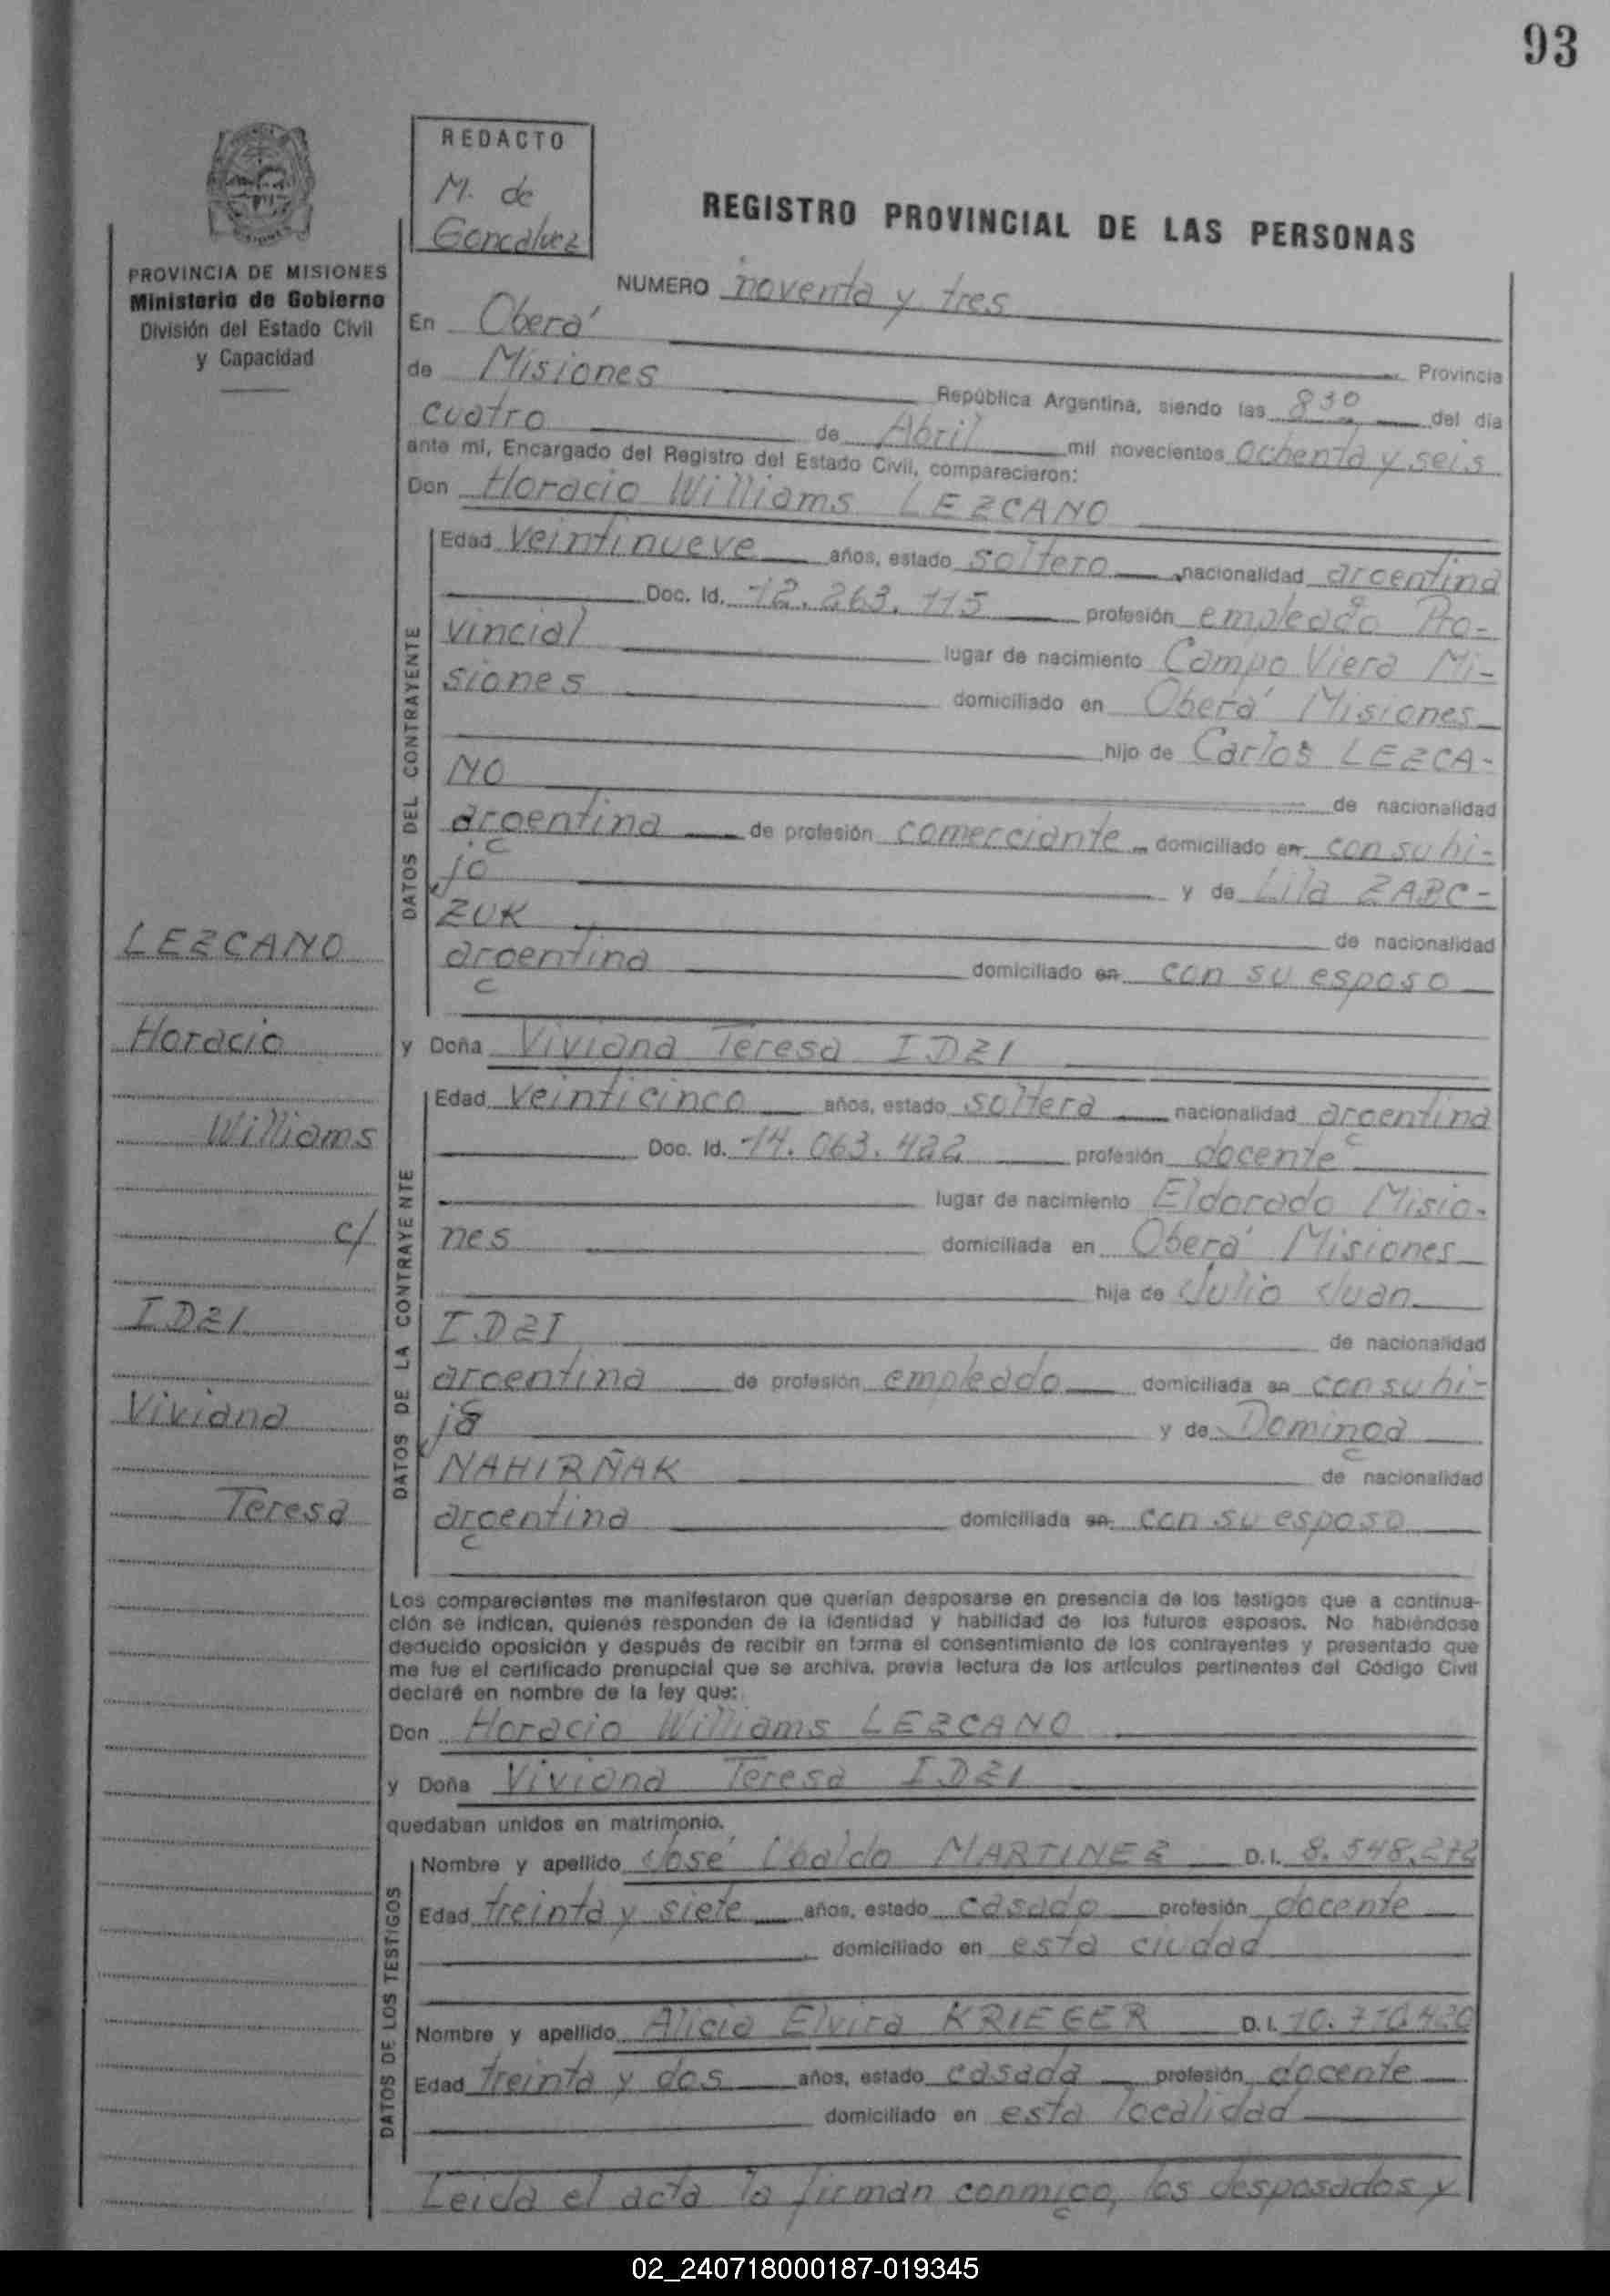 93
REDACTO
M. de
Goncalvez
REGISTRO PROVINCIAL DE LAS PERSONAS
PROVINCIA DE MISIONES
Ministerio de Gobierno
División del Estado Civil
y Capacidad
NUMERO noventa y tres
En Oberá
Provincia
de Misiones República Argentina, siendo las 8 30 del día
cuatro de Abril mil novecientos ochenta y seis
ante mí, Encargado del Registro del Estado Civil, comparecieron:
Don Horacio Williams LEZCANO
DATOS DEL CONTRAYENTE
Edad veintinueve años, estado soltero nacionalidad argentina
Doc. Id. 12.263.115 profesión empleado Pro-
vincial lugar de nacimiento Campo Viera Mi-
siones domiciliado en Oberá Misiones
hijo de Carlos LEZCA-
NO de nacionalidad
argentina de profesión comerciante domiciliado en con su hi-
jo y de Lila ZABC-
ZUK de nacionalidad
argentina domiciliado en con su esposo
y Doña Viviana Teresa IDZI
DATOS DE LA CONTRAYENTE
Edad veinticinco años, estado soltera nacionalidad argentina
Doc. Id. 14.063.422 profesión docente
lugar de nacimiento Eldorado Misio-
nes domiciliada en Oberá Misiones
hija de Julio Juan
IDZI de nacionalidad
argentina de profesión empleado domiciliada en con su hi-
ja y de Dominga
NAHIRÑAK de nacionalidad
argentina domiciliada en con su esposo
LEZCANO
Horacio
Williams
c/
IDZI
Viviana
Teresa
Los comparecientes me manifestaron que querían desposarse en presencia de los testigos que a continua-
ción se indican, quienes responden de la identidad y habilidad de los futuros esposos. No habiéndose
deducido oposición y después de recibir en forma el consentimiento de los contrayentes y presentado que
me fue el certificado prenupcial que se archiva, previa lectura de los artículos pertinentes del Código Civil
declaré en nombre de la ley que:
Don Horacio Williams LEZCANO
y Doña Viviana Teresa IDZI
quedaban unidos en matrimonio.
DATOS DE LOS TESTIGOS
Nombre y apellido José Ubaldo MARTINEZ D.I. 8.548.272
Edad treinta y siete años, estado casado profesión docente
domiciliado en esta ciudad
Nombre y apellido Alicia Elvira KRIEGER D.I. 10.710.420
Edad treinta y dos años, estado casada profesión docente
domiciliado en esta localidad
Leida el acta la firman conmigo, los desposados y
02_240718000187-019345